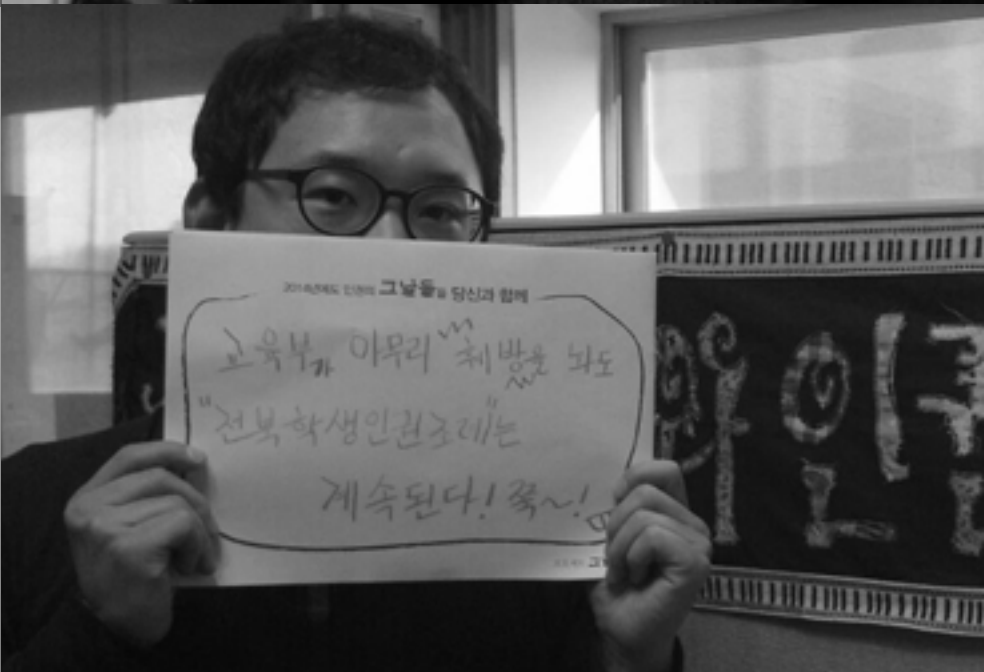 2014년에도 인권의 그날들을 당신과 함께
교육부가 아무리 훼방을 놔도
"전북학생인권조례"는
계속된다! 쭉~!
인권